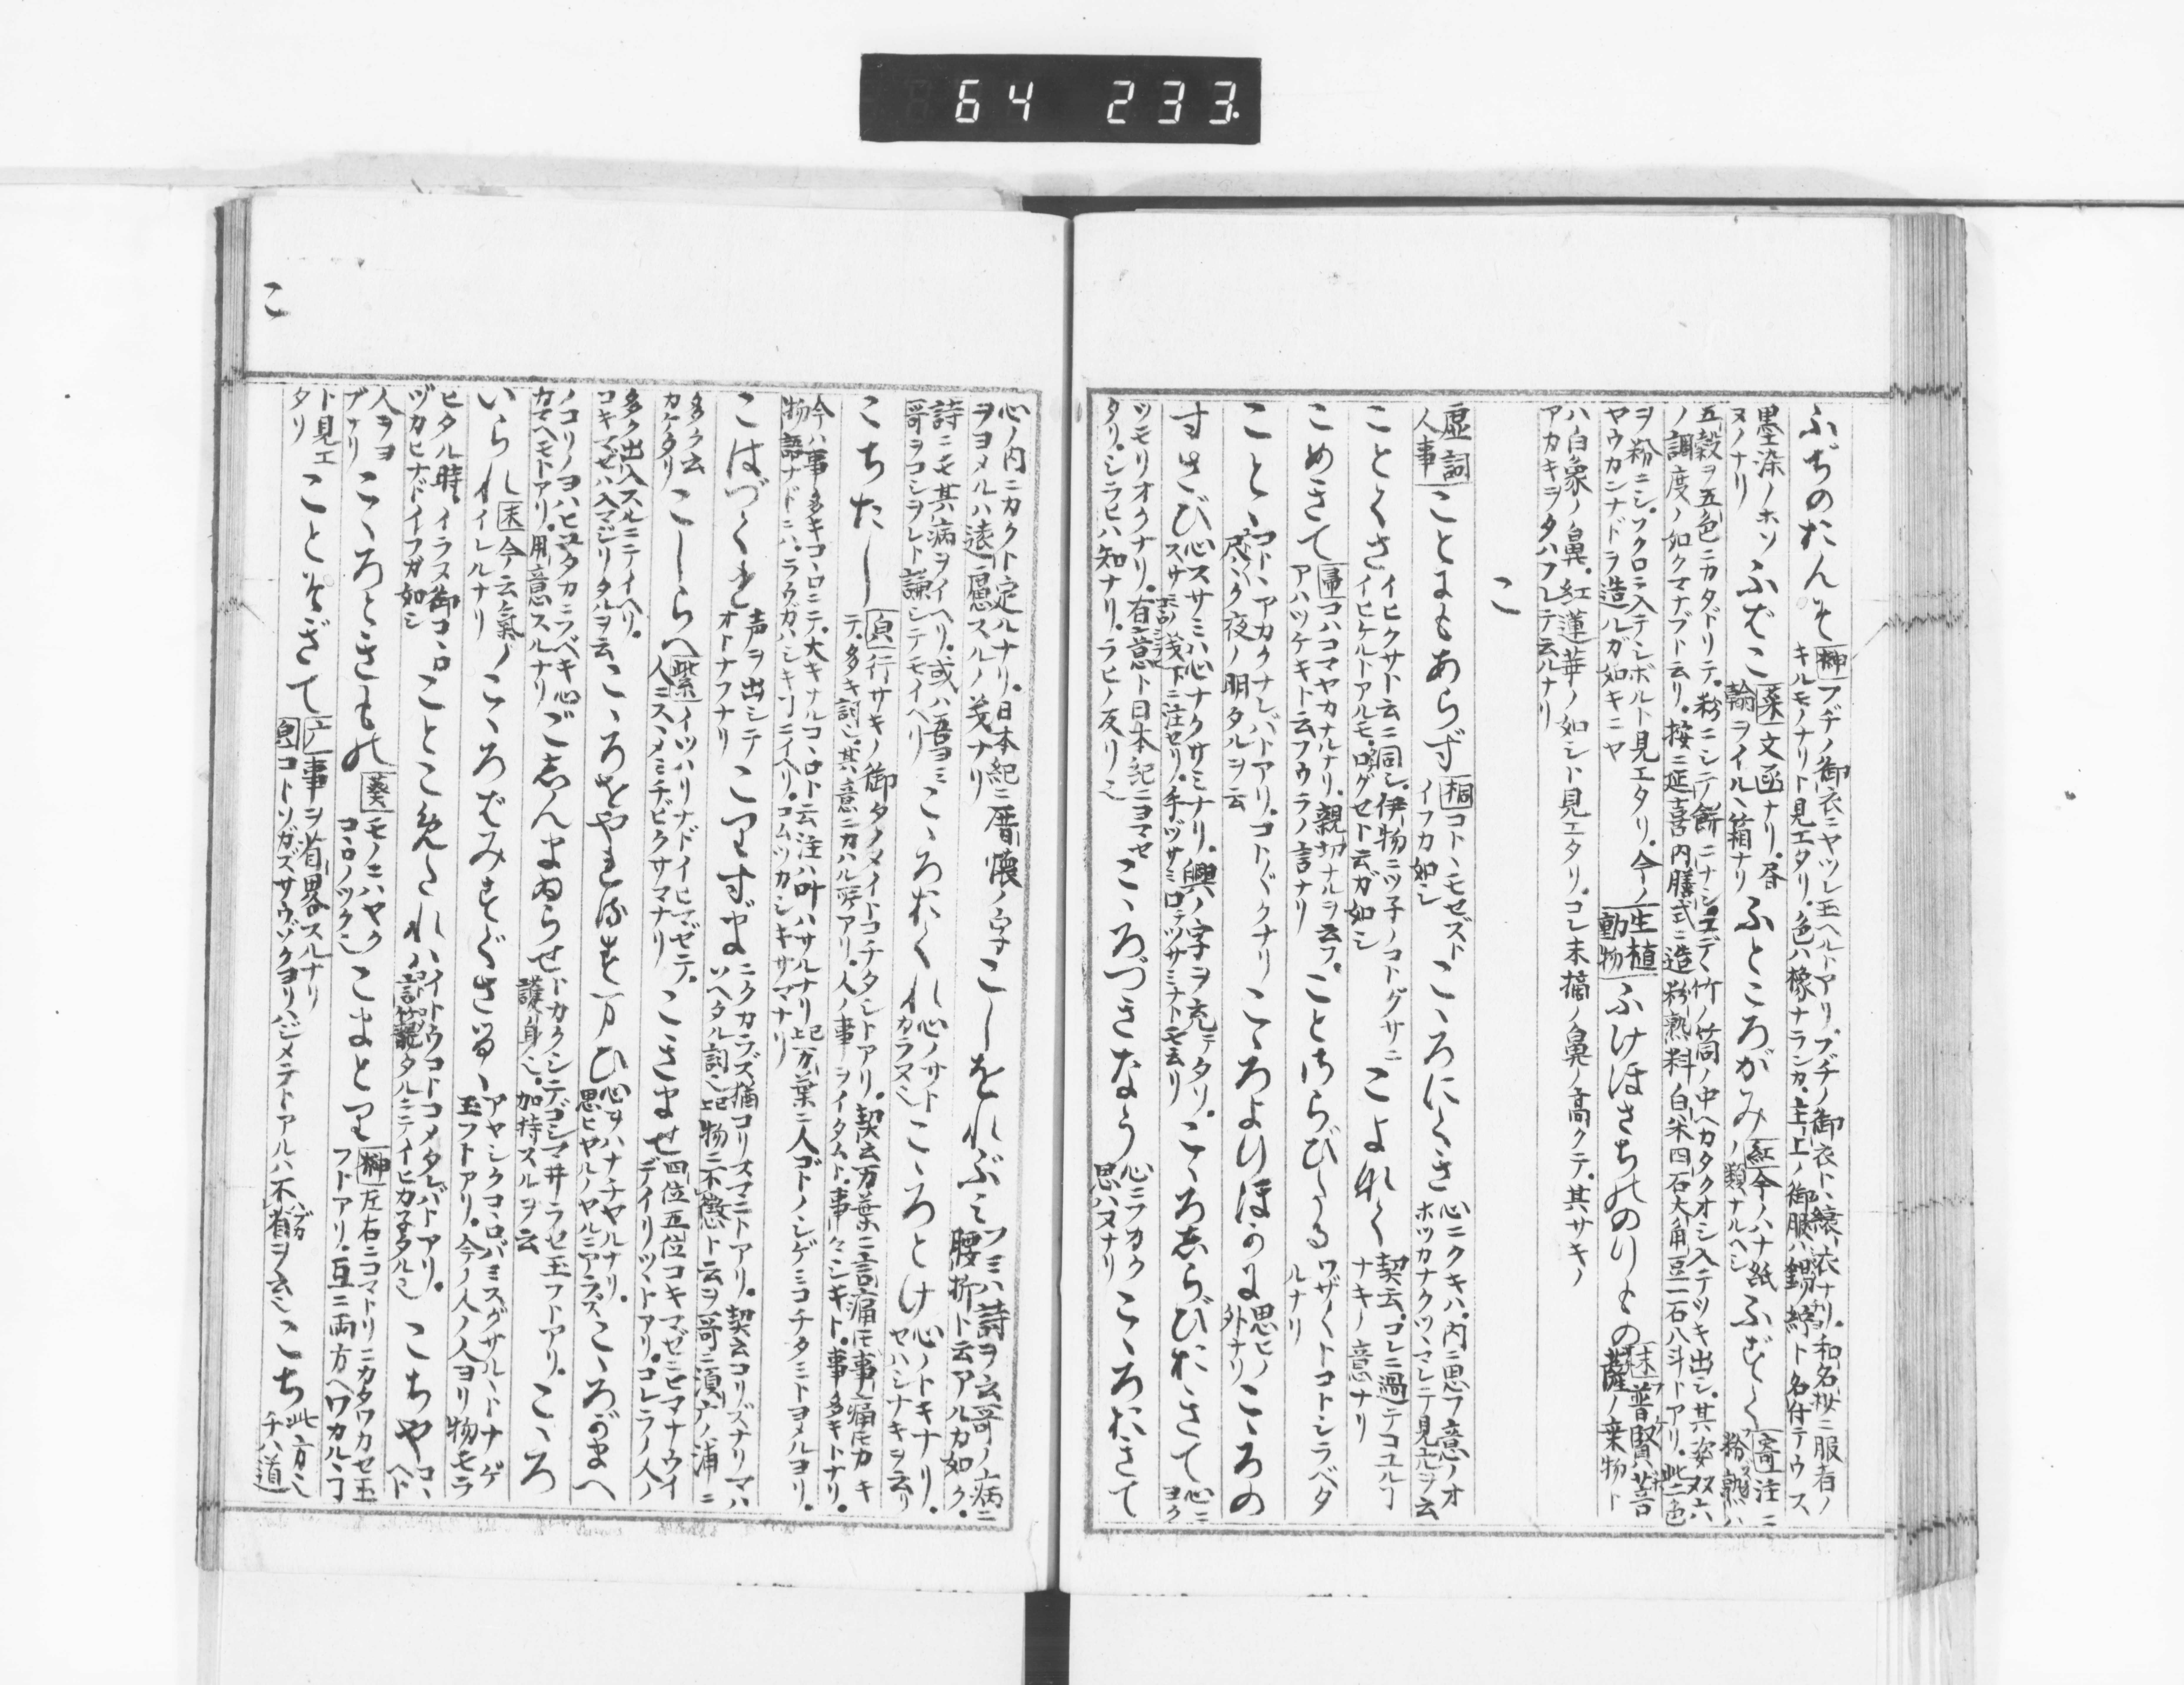 64 233.
ふぢのたんそ 榊 フヂノ御衣ニヤツレ玉ヘルトアリ。フヂノ御衣ト、縗衣ナリ。和名抄ニ服者ノ
キルモノナリト見エタリ。色ハ橡ナランカ。主上ノ御服ハ錫紵ト名付テウス
墨染ノホソヌノナリ ふばこ 葉 文函ナリ。昏輪ヲイル、箱ナリ ふところがみ 紅 今ノハナ紙ノ類ナルヘシ ふずく 寄 注ニ粉熟ハ
五穀ヲ五色ニカタドリテ。粉ニシテ餅ニナシ。ユデ、竹ノ筒ノ中ヘカタクオシ入テツキ出シ。其姿双六
ノ調度ノ如クマナブト云リ。按ニ延喜内膳式ニ造粉熟料白米四石大角豆二石八斗トアリ。此二色
ヲ粉ニシ。フクロニ入テシボルト見エタリ。今ノヤウカンナドヲ造ルガ如キニヤ 生植動物 ふけほさちのゝりもの 末 普賢菩薩ノ乗物ト
ハ白象ノ鼻。紅蓮華ノ如シト見エタリ。コレ末摘ノ鼻ノ高クテ。其サキノ
アカキヲタハフレテ云ルナリ
こ
虚詞人事 ことにもあらず 桐 コト、モセズトイフカ如シ こゝろにくき 心ニクキハ。内ニ思フ意ノオホツカナクツ、マシテ見エヲ云
ことくさ イヒクサト云ニ同シ。伊物ニツ子ノコトグサニイヒケルトアルモ。口グセト云ガ如シ こよなく 契云。コレニ過テコユルナキノ意ナリ
こめきて 帚 コハコマヤカナルナリ。親切ナルヲ云フ。アハツケキト云フウラノ言ナリ ことさらびたる ワザ〱トコトシラベタルナリ
こと、 コト、アカクナレバトアリ。コト〲クナリ 尽ク夜ノ明タルヲ云 こゝろよりほかに 思ヒノ外ナリ こゝろの
すさび 心スサミハ心ナクサミナリ。興ノ字ヲ充テタリ。スサ 詳浅下ニ注セリ。手ヅサミ口ヅサミナト モ云リ こゝろしらひおきて 心ニヨク
ツモリオクナリ。有意ト日本紀ニヨマセタリ。シラヒハ知ナリ。ラヒノ反リ也 こゝろづきなう 心ニフカク思ハヌナリ こゝろおきて
心ノ内ニカクト定ルナリ。日本紀ニ唇懐ノ字ヲヨメルハ遠慮スルノ義ナリ こしをれぶみ フミハ詩ヲ云哥ノ病ニ腰折ト云アルカ如ク。
詩ニモ其病ヲイヘリ。或ハ吾ヨミ哥ヲコシヲレト謙シテモイヘリ こゝろおくれ 心ノサトカラヌ也 こゝろとけ 心ノトキナリ。ヤハシナキヲ云リ
こちたし 貞 行サキノ御タノメイトコチタシトアリ。契云万葉ニ言痛モ事痛モカキ
テ。多キ詞也。其意ニカハル所アリ。人ノ事ヲイタムト。事々シキト。事多キトナリ。
今ハ事多キコ、ロニテ。大キナルコ、ロト云注ハ叶ハサルナリ 記 万葉ニ人ゴトノシゲミコチタミトヨメルヨリ。
物語ナドニハ。ラウガハシキヿニイヘリ。コムツカシキサマナリ
こはづくり 声ヲ出シテオトナフナリ こりずま ニクカラズ猶コリズマニトアリ。契云コリズナリマハソヘタル詞也 記 物ニ不懲ト云ヲ哥ニ須广ノ浦ニ
多ク云カケタリ こしらへ 紫 イツハリナドイヒマゼテ。人ヲス、メミチビクサマナリ こきまぜ 四位五位コキマゼニヒマナウイデイリツ、トアリ。コレラノ人ノ
多ク出入スルニテイヘリ。コキマゼハ入マジリタルヲ云 こゝろをやれる 万 ひ 心ヲハナチヤルナリ。思ヒヤルノヤルニアラズ こゝろがまへ
ノコリノヨハヒユタカニフベキ心カマヘモトアリ。用意スルナリ ごしんまゐらせ トカクシテゴシマ井ラセ玉フトアリ。護身也。加持スルヲ云 こゝろ
いられ 末 今云氣ノイレルナリ こゝろばみすぐさる、 アヤシクコ、ロバミスグサル、トナゲ玉フトアリ。今ノ人ノ人ヨリ物モラ
ヒタル時。イラヌ御コ、ロヅカヒナドイフガ如シ ことこめたれハ イトウコトコメタレバトアリ。言籠タルニテイヒカ子タル也 こちや コ、ヘト
人ヲヨブナリ こゝろときもの 葵 モノニハヤクコ、ロノツク也 こまとり 榊 左右ニコマトリニカタワカセ玉フトアリ。互ニ両方ヘワカル、ヿ
ト見エタリ ことそぎて 广 事ヲ省畧スルナリ 皃 コトソガズサウゾクヨリハジメテトアルハ不省ヲ云也 こち 此ノ方也チハ道
こ